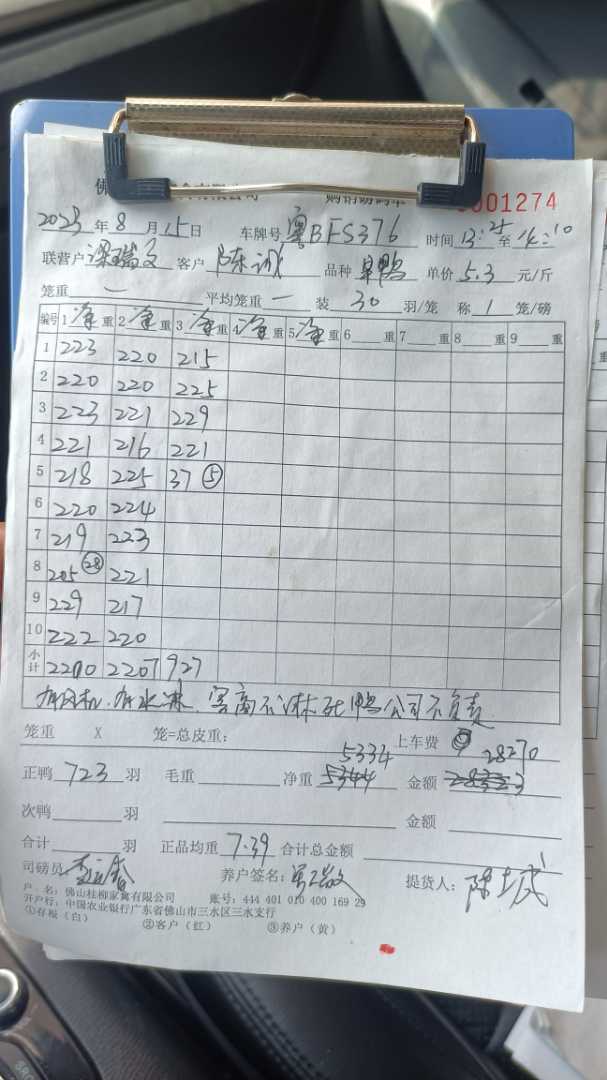 佛 购销磅码单 0001274
2023年8月15日 车牌号 粤BFS376 时间 13:25至14:10
联营户 梁瑞文 客户 陈诚 品种 单价 5.3 元/斤
笼重 一 平均笼重 一 装 30 羽/笼 称 1 笼/磅
编号 1 净重 2 净重 3 净重 4 净重 5 净重 6 重 7 重 8 重 9 重
1 223 220 215
2 220 220 225
3 223 221 229
4 221 216 221
5 218 225 37 ⑤
6 220 224
7 219 223
8 205 ㉘ 221
9 229 217
10 222 220
小计 2200 2207 927
有风机.有水淋 客商不淋死鸭公司不负责
笼重 X 笼=总皮重: 上车费
5334 28270
正鸭 723 羽 毛重 净重 5344 金额 28323
次鸭 羽 金额
合计 羽 正品均重 7.39 合计总金额
司磅员 养户签名: 提货人:
户 名: 佛山桂柳家禽有限公司 账号: 444 401 010 400 169 29
开户行: 中国农业银行广东省佛山市三水区三水支行
①存根(白) ②客户(红) ③养户(黄)